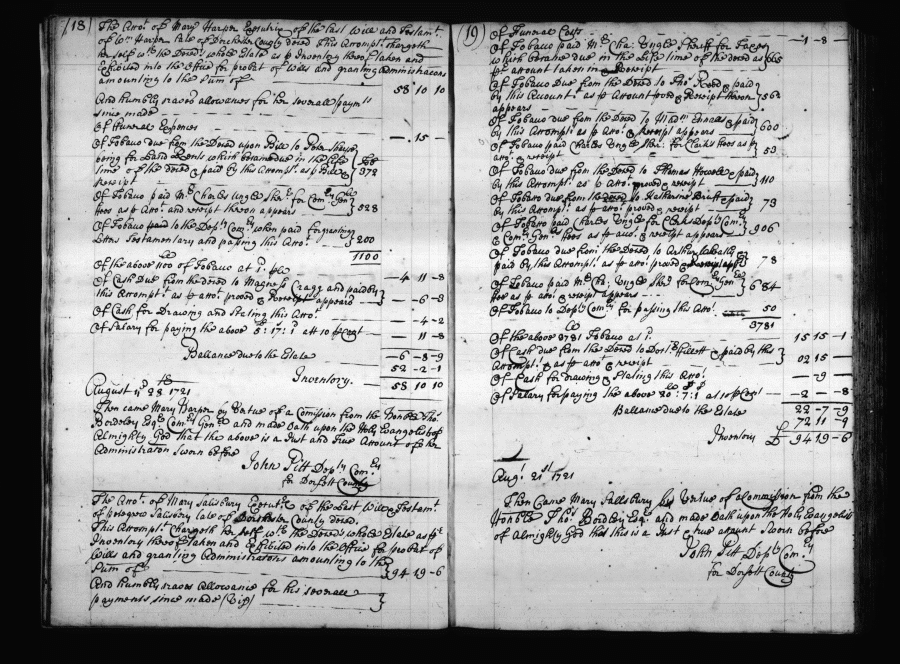 (18)
The Accot. of Mary Harper Executrix of the Last Will and Testamt.
of Wm Harper late of Dorchester County dec̄ed This Accomptt. Chargeth
her self wth. the Deced.s whole Estate as p Inventory thereof taken and
Exhibited into the Office for probat of Wills and granting Administracons
amounting to the Sum of
58 10 10
And humbly craves allowance for her severall paymts
since made
Of Funeral Expences — 15 —
Of Tobacco due from the Dec̄ed upon Bill to
being for Land Rents which became due in the Life
time of the dec̄ed & paid by this Accompt. as p Bill &
Receipt 372
Of Tobacco paid Mr. Charles Ungle Sher. for Com Genl
Fees as p Accot. and receipt thereon appears 528
Of Tobacco paid to the Depty Comry when paid for granting
Letters Testamentary and passing this Accot. 200
1100
Of the above 1100 of Tobacco at 1d. p lb — 4 11 — 8
Of Cash Due from the dec̄ed to Magness Cragg and paid by
this Accomptt. as p accot. proved & Receipt appears — — 6 — 8
Of Cash for Drawing and Stating this Accot. — — 4 — 2
Of Salary for paying the above 5: 17: 1 att 10 p Cent — 11 — 8
Ballance due to the Estate — 6 — 8 — 9
52 — 2 — 1
Inventory. — 58 10 10
August ye 23 1721
Then came Mary Harper by Vertue of a Comission from the Honoble Tho.
Bordeley Esqr. Com. Genll and made Oath upon the Holy Evangelist of
Almighty God that the above is a Just and True Account of her
Administracon Sworn before
John Pitt Depty Comry
for Dorsett County
The Accot. of Mary Salisbury Executrix of the Last Will & Testamt.
of Petegrew Salisbury late of Dorchester County deced.
This Accompt. Chargeth her self wth the Deceds whole Estate as p
Inventory thereof taken and Exhibited into the Office for probat of
Wills and granting Administracons amounting to the
Sum of 94 19 — 6
And humbly craves Allowance for his severall
payments since made (Vizt)
(19)
Of Funeral Costs — 1 — 8
Of Tobacco paid Mr. Cha: Ungle Sheriff for Taxes
which became due in the Life time of the deced as
p account taken in & Receipt
Of Tobacco Due from the Deced to Tho. & paid
by this Accomt. as p Account proved & Receipt thereon
appears 562
Of Tobacco due from the Deced to Madm. Ennalls & paid
by this Accompt. as p Accot. & Receipt appears 600
Of Tobacco paid Charles Ungle Sher. for Clarks Fees as p
acco. & receipt 53
Of Tobacco due from the Deced to Thomas & paid
by this Accompt. as p Accot. proved & receipt 110
Of Tobacco due from the Deced to Katherine & paid
by this Accompt. as p accot. proved & receipt 73
Of Tobacco paid Charles Ungle for Clerks Depty Com
& Com. Gen Fees as p acct. & receipt appears 906
Of Tobacco due from the Deced to Arthur
paid by this Accompt. as p accot. proved & receipt 78
Of Tobacco paid Mr. Cha: Ungle Sher. for Com. Genl
Fees as p acco & receipt appears 684
Of Tobacco to Depty Comry for passing this Acco. 50
3781
Of the above 3781 Tobacco at 1d. 15 15 — 1
Of Cash due from the Deced to & paid by this
Accompt. as p acco & receipt 02 15 —
Of Cash for drawing & Stating this Acco. — 9 —
Of Salary for paying the above 20: 7: 1 as 10 p Cent — 2 — — 8
Ballance due to the Estate 22 — 7 — 9
72 11 — 9
Inventory £ 94 19 — 6
Augt. 21st 1721
Then Came Mary Sallsbury by Vertue of a Commission from the
Honoble Tho. Bordley Esqr. and made Oath upon the Holy Evangelist
of Almighty God that this is a Just & true acount Sworn before
John Pitt Depty Comry
for Dorsett County